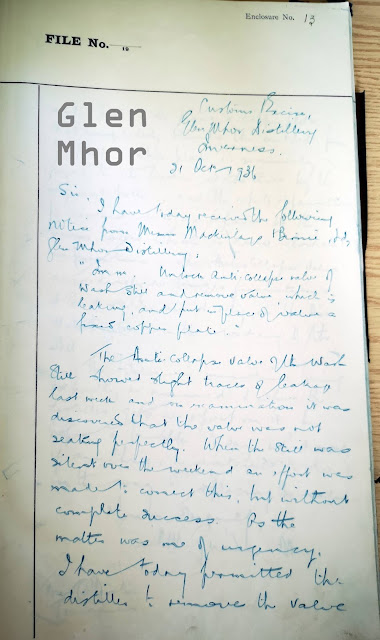 Enclosure No. 13/7
FILE No.
19
Glen
Mhor
Customs & Excise,
Glen Mhor Distillery
Inverness.
21 Oct 1936
Sir,
I have today received the following
notice from Messrs Mackinlays & Birnie, Ltd,
Glen Mhor Distillery,
"Imme. Unlock Anti-collapse valve of
Wash Still and remove valve, which is
leaking, and put in place of valve a
fixed copper plate."
The Anti collapse valve of the Wash
Still showed slight traces of leaking
last week and on examination it was
discovered that the valve was not
seating perfectly. When the still was
silent over the weekend an effort was
made to correct this, but without
complete success. As the
matter was one of urgency,
I have today permitted the
distiller to remove the valve